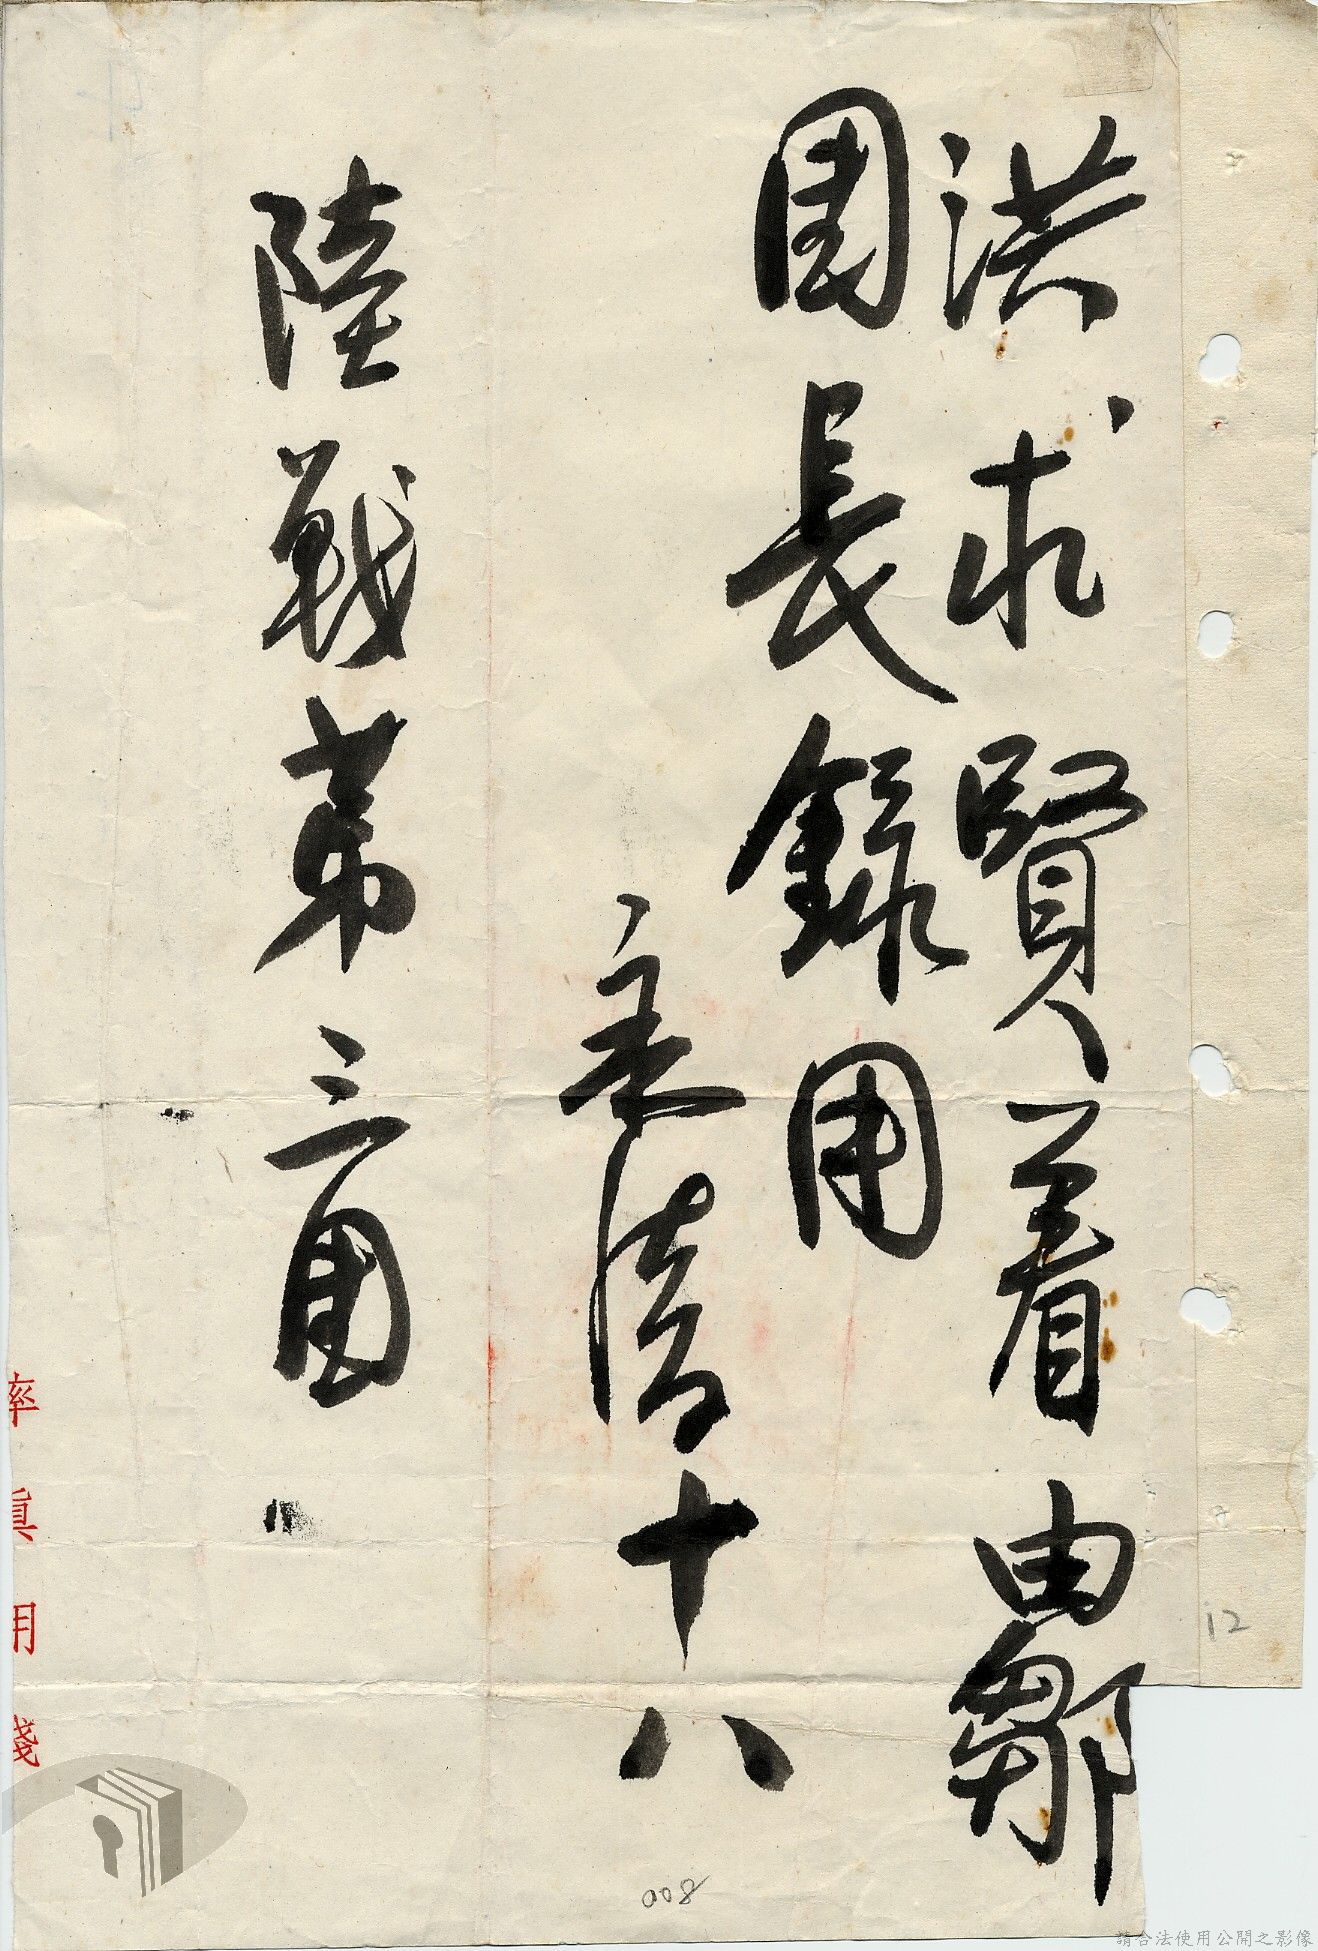 洪求賢着由鄒
團長錄用
永清十八
陸戰第三團
率真用箋
12
008
請合法使用公開之影像